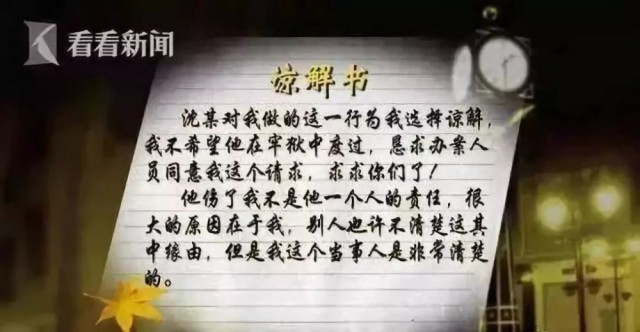 看看新闻
谅解书
沈某对我做的这一行为我选择谅解，
我不希望他在牢狱中度过，恳求办案人
员同意我这个请求，求求你们了！
他伤了我不是他一个人的责任，很
大的原因在于我，别人也许不清楚这其
中缘由，但是我这个当事人是非常清楚
的。